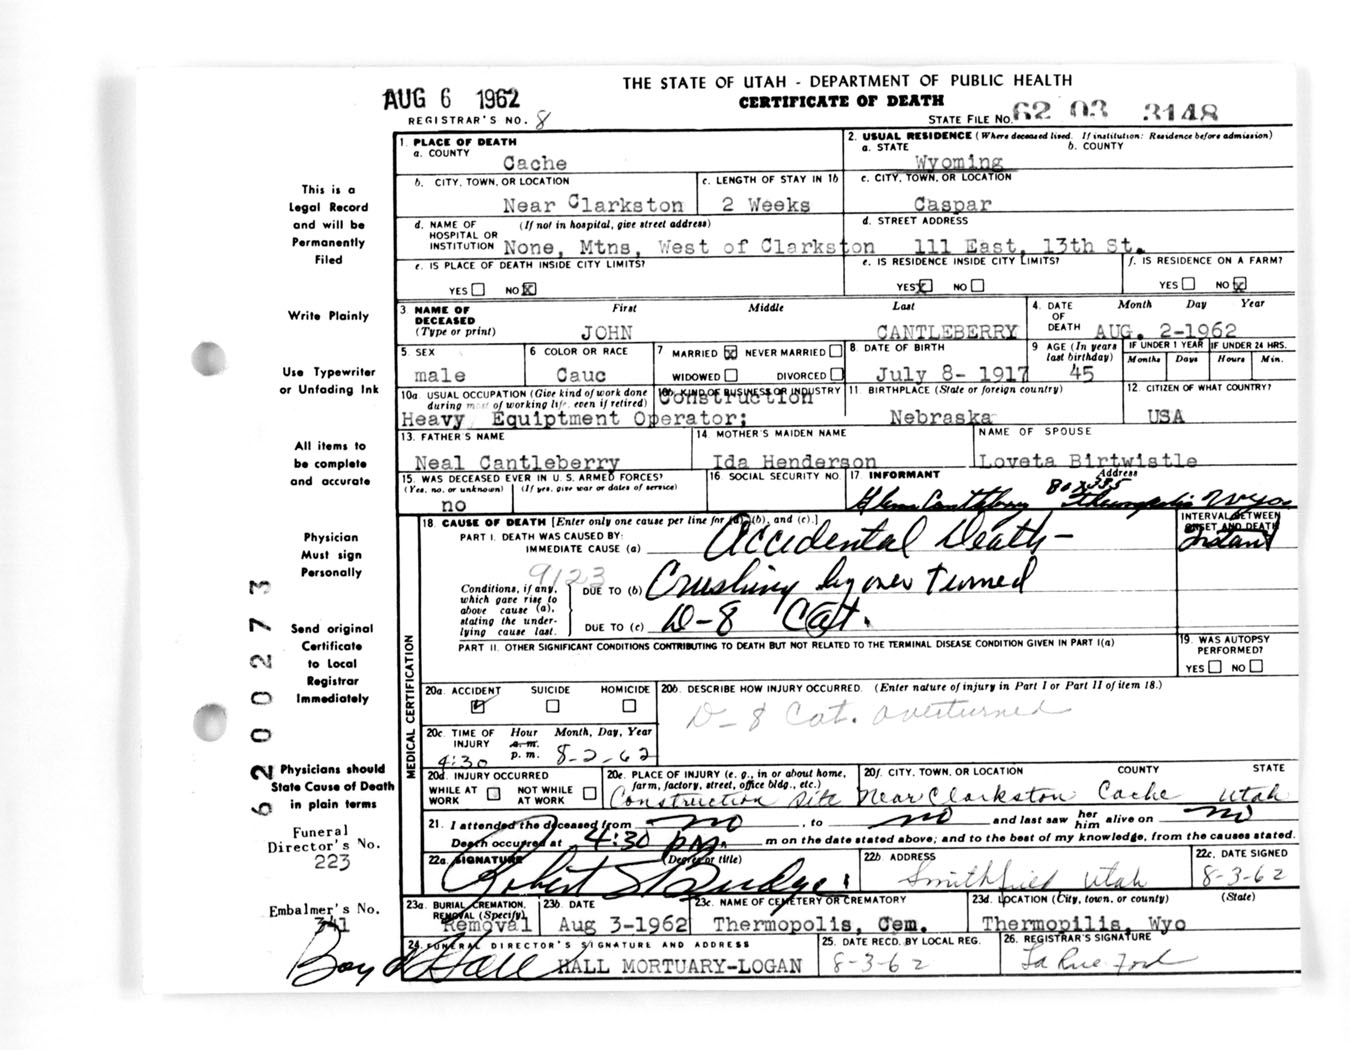 THE STATE OF UTAH - DEPARTMENT OF PUBLIC HEALTH
AUG 6 1962
CERTIFICATE OF DEATH
REGISTRAR'S NO. 8
STATE FILE NO. 62 03 3148
1. PLACE OF DEATH
a. COUNTY
Cache
2. USUAL RESIDENCE (Where deceased lived. If institution: Residence before admission)
a. STATE b. COUNTY
Wyoming
b. CITY, TOWN, OR LOCATION
Near Clarkston
c. LENGTH OF STAY IN 1b
2 Weeks
c. CITY, TOWN, OR LOCATION
Caspar
d. NAME OF (If not in hospital, give street address)
HOSPITAL OR
INSTITUTION None, Mtns, West of Clarkston
d. STREET ADDRESS
111 East, 13th St.
e. IS PLACE OF DEATH INSIDE CITY LIMITS?
YES NO X
e. IS RESIDENCE INSIDE CITY LIMITS?
YES X NO
f. IS RESIDENCE ON A FARM?
YES NO X
3. NAME OF DECEASED (Type or print)
First Middle Last
JOHN CANTLEBERRY
4. DATE OF DEATH Month Day Year
AUG. 2-1962
5. SEX
male
6 COLOR OR RACE
Cauc
7 MARRIED X NEVER MARRIED
WIDOWED DIVORCED
8 DATE OF BIRTH
July 8- 1917
9 AGE (In years last birthday)
45
IF UNDER 1 YEAR IF UNDER 24 HRS.
Months Days Hours Min.
10a. USUAL OCCUPATION (Give kind of work done
during most of working life, even if retired)
Heavy Equiptment Operator;
10b. KIND OF BUSINESS OR INDUSTRY
Construction
11. BIRTHPLACE (State or foreign country)
Nebraska
12. CITIZEN OF WHAT COUNTRY?
USA
13. FATHER'S NAME
Neal Cantleberry
14. MOTHER'S MAIDEN NAME
Ida Henderson
NAME OF SPOUSE
Loveta Birtwistle
15. WAS DECEASED EVER IN U. S. ARMED FORCES?
(Yes, no. or unknown) (If yes, give war or dates of service)
no
16. SOCIAL SECURITY NO.
17. INFORMANT Address
Box 235
Wyo
18. CAUSE OF DEATH [Enter only one cause per line for (a), (b), and (c).]
PART I. DEATH WAS CAUSED BY:
IMMEDIATE CAUSE (a) Accidental Death -
INTERVAL BETWEEN
ONSET AND DEATH
Instant
9123
Conditions, if any,
which gave rise to
above cause (a),
stating the under-
lying cause last.
DUE TO (b) Crushing by over turned
DUE TO (c) D-8 Cat.
PART II. OTHER SIGNIFICANT CONDITIONS CONTRIBUTING TO DEATH BUT NOT RELATED TO THE TERMINAL DISEASE CONDITION GIVEN IN PART I(a)
19. WAS AUTOPSY
PERFORMED?
YES NO
20a. ACCIDENT SUICIDE HOMICIDE
20b. DESCRIBE HOW INJURY OCCURRED. (Enter nature of injury in Part I or Part II of item 18.)
D-8 Cat. overturned
20c. TIME OF INJURY Hour Month, Day, Year
a. m.
p. m.
4:30 8-2-62
20d. INJURY OCCURRED
WHILE AT WORK NOT WHILE AT WORK
20e. PLACE OF INJURY (e. g., in or about home,
farm, factory, street, office bldg., etc.)
Construction Site
20f. CITY, TOWN, OR LOCATION COUNTY STATE
Near Clarkston Cache Utah
21. I attended the deceased from no , to no and last saw her him alive on no
Death occurred at 4:30 pm. m on the date stated above; and to the best of my knowledge, from the causes stated.
22a. SIGNATURE (Degree or title)
Robert S Budge
22b. ADDRESS
Smithfield Utah
22c. DATE SIGNED
8-3-62
23a. BURIAL, CREMATION,
REMOVAL (Specify)
Removal
23b. DATE
Aug 3-1962
23c. NAME OF CEMETERY OR CREMATORY
Thermopolis, Cem.
23d. LOCATION (City, town, or county) (State)
Thermopilis, Wyo
24. FUNERAL DIRECTOR'S SIGNATURE AND ADDRESS
Boyd Hall HALL MORTUARY-LOGAN
25. DATE RECD. BY LOCAL REG.
8-3-62
26. REGISTRAR'S SIGNATURE
La Rue Ford
MEDICAL CERTIFICATION
This is a
Legal Record
and will be
Permanently
Filed
Write Plainly
Use Typewriter
or Unfading Ink
All items to
be complete
and accurate
Physician
Must sign
Personally
Send original
Certificate
to Local
Registrar
Immediately
Physicians should
State Cause of Death
in plain terms
Funeral
Director's No.
223
Embalmer's No.
341
62 0 0 0 2 7 7 3